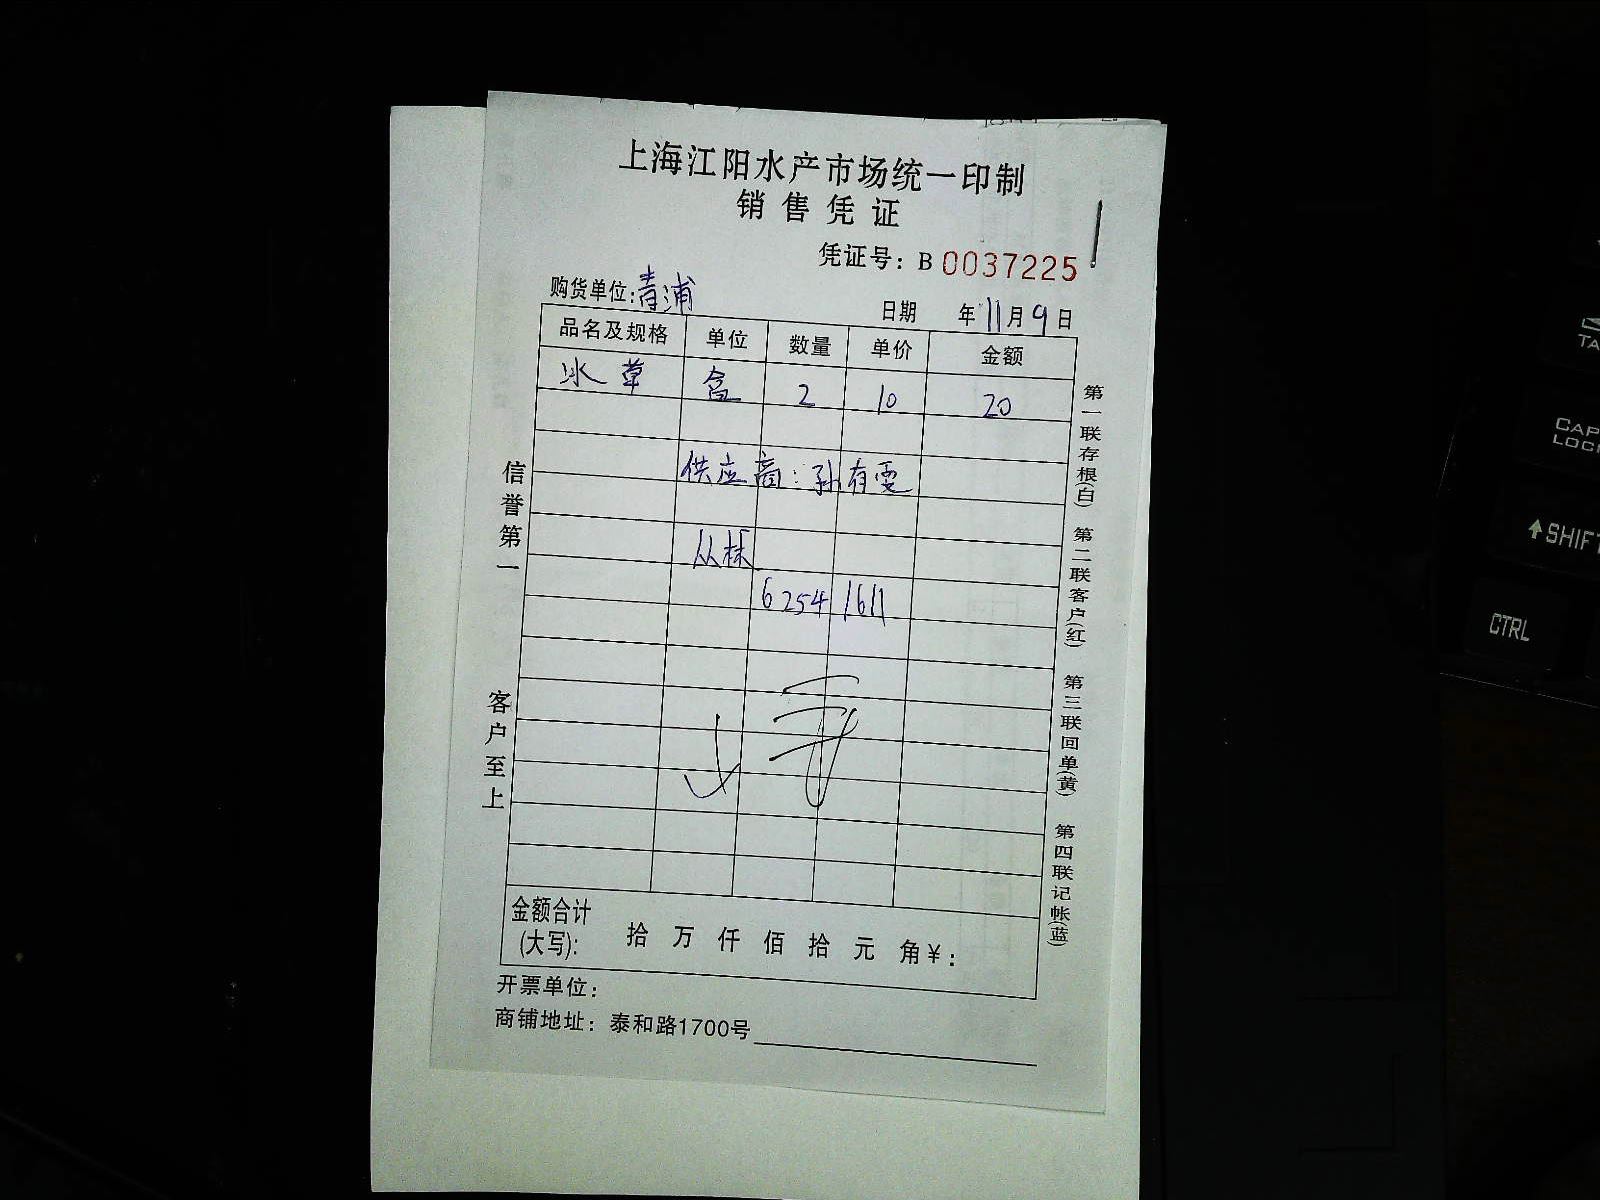 上海江阳水产市场统一印制
销售凭证
凭证号：B 0037225
购货单位：青浦
日期 年11月9日
品名及规格 单位 数量 单价 金额
冰草 盒 2 10 20
供应商：孙有雯
62541611
信誉第一
客户至上
第一联存根(白) 第二联客户(红) 第三联回单(黄) 第四联记帐(蓝)
金额合计
(大写)： 拾 万 仟 佰 拾 元 角 ¥：
开票单位：
商铺地址：泰和路1700号
TA
CAP
LOC
SHIFT
CTRL